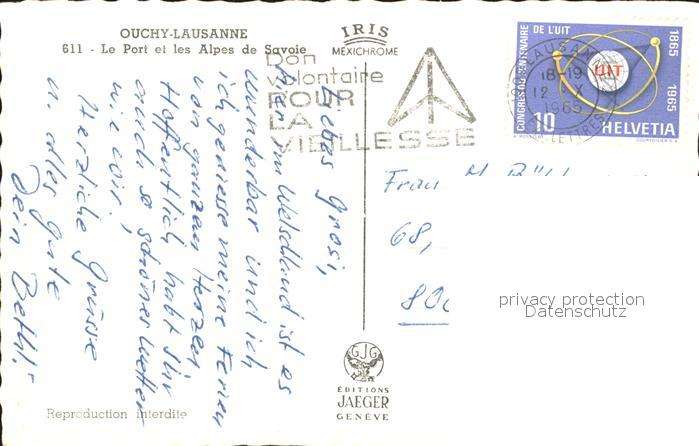 OUCHY-LAUSANNE
611 - Le Port et les Alpes de Savoie
IRIS
MEXICHROME
Don
volontaire
POUR
LA
VIEILLESSE
LAUSANNE
18-19
12 X
1965
LETTRES
CONGRES DU CENTENAIRE
DE L'UIT
1865
1965
UIT
10
HELVETIA
COURVOISIER S.A.
Liebes Grosi,
hier im Welschland ist es
wunderbar und ich
ich geniesse meine Ferien
von ganzem Herzen.
Hoffentlich habt Ihr
auch so schönes Wetter
wie wir.
Herzliche Grüsse
u. alles gute
Dein Bethli
Frau M.
68,
800
privacy protection
Datenschutz
GJG
EDITIONS
JAEGER
GENÈVE
Reproduction interdite